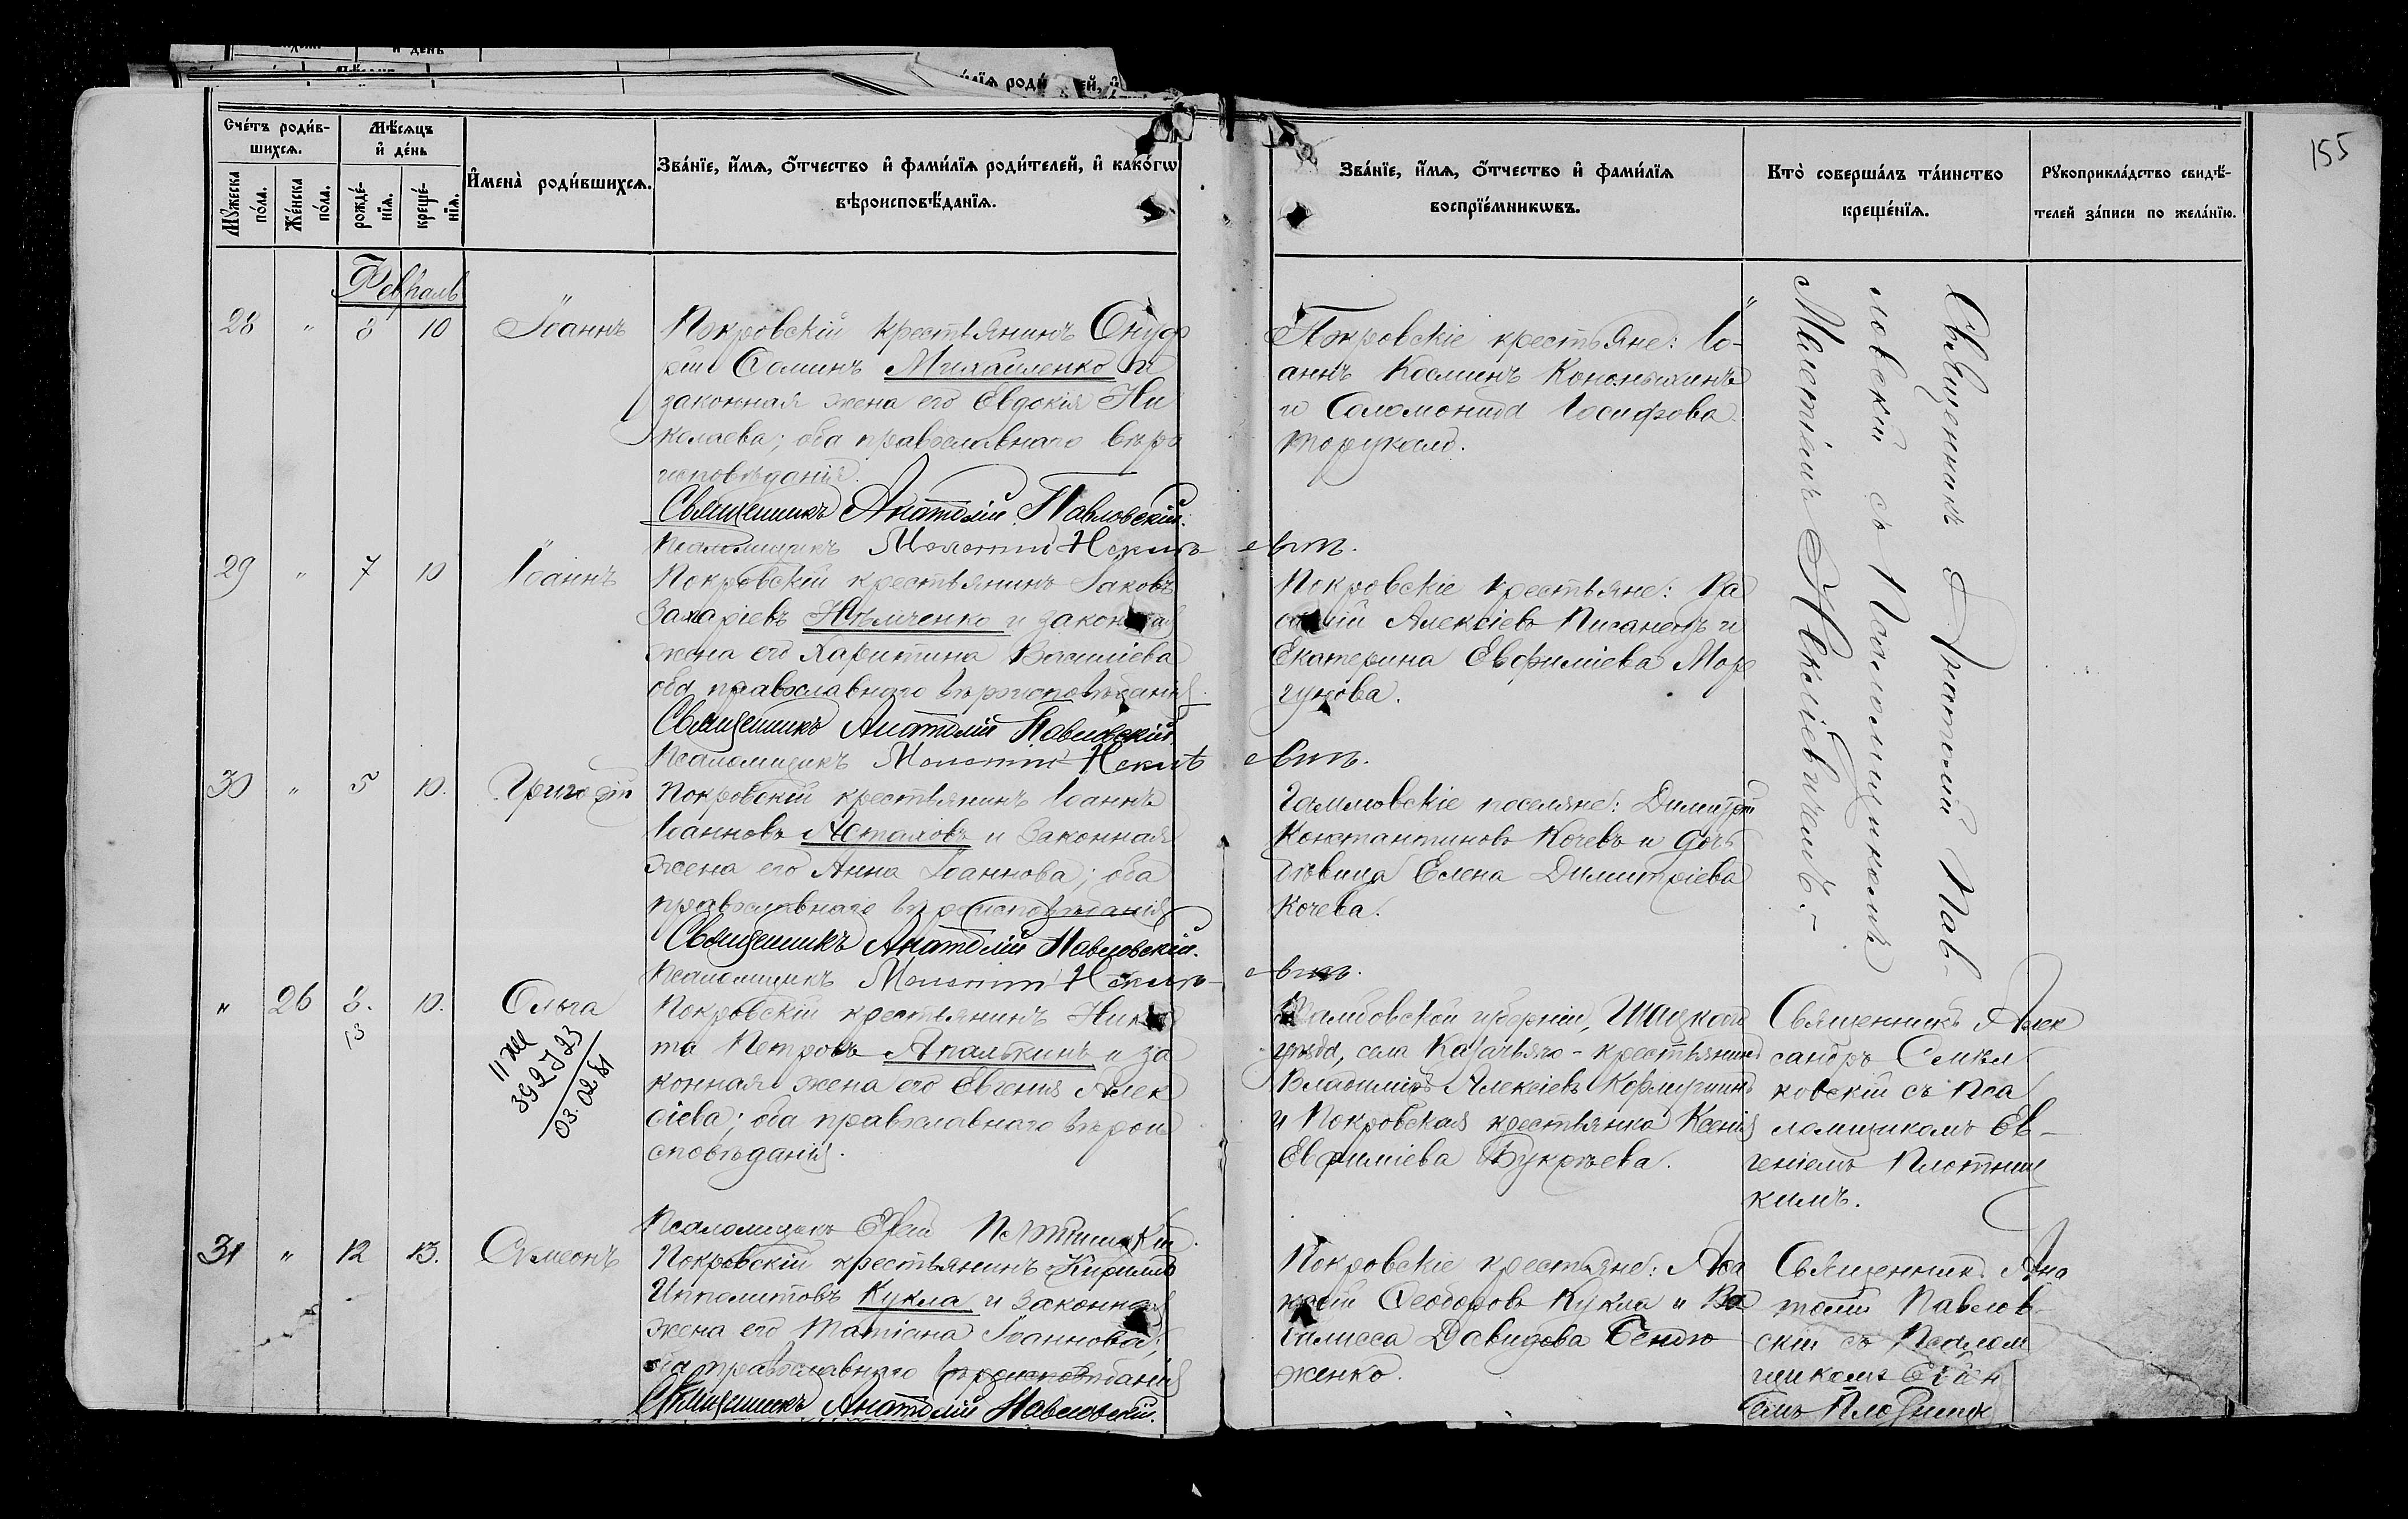 155
Счетъ родив-
шихся.
Мѣсяцъ
и день
Мужеска
пола.
Женска
пола.
рожде-
нія.
креще-
нія.
Имена родившихся.
Званіе, имя, отчество и фамилія родителей, и какогѡ
вѣроисповѣданія.
Званіе, имя, отчество и фамилія
воспріемникѡвъ.
Кто совершалъ таинство
крещенія.
Рукоприкладство свидѣ-
телей записи по желанію.
Февраль
28 " 8 10 Іоаннъ
Покровскій крестьянинъ Онуф
рій Ѳоминъ Михайленко и
законная жена его Евдокія Ни
колаева; оба православнаго вѣро
исповѣданія.
Священникъ Анатолій Павловскій.
Псаломщикъ
Покровскіе крестьяне: Іо-
аннъ Косминъ
и Соломонида Іосифова
Священникъ Анатолій Пав-
ловскій съ Псаломщикомъ
29 " 7 10 Іоаннъ
Покровскій крестьянинъ Іаковъ
Захаріевъ Нѣмченко и законная
жена его Харитина Василіева
оба православнаго вѣроисповѣданія.
Священникъ Анатолій Павловскій
Псаломщикъ
Покровскіе крестьяне:
Алексіевъ и
Екатерина Евфиміева Мор
гунова.
30 " 5 10. Григорій
Покровскій крестьянинъ Іоаннъ
Іоанновъ и законная
жена его Анна Іоаннова; оба
православнаго вѣроисповѣданія
Священникъ Анатолій Павловскій.
Псаломщикъ
поселяне: Димитрій
Константиновъ Кочевъ и дочь
дѣвица Елена Димитріева
Кочева.
" 26 8. 10. Ольга
13
03.02.81
Покровскій крестьянинъ Ники
та Петровъ Апалькинъ и за
конная жена его Евгенія Алек
сіева; оба православнаго вѣрои
сповѣданія.
Псаломщикъ
Тамбовской губерніи, Шацкаго
уѣзда, села Казачьяго - крестьянинъ
Владиміръ Алексіевъ
и Покровская крестьянка Ксенія
Евфиміева Букрѣева.
Священникъ Алек
сандръ
ковскій съ Пса
ломщикомъ Ев-
геніемъ Плотниц
кимъ.
31 " 12 13. Симеонъ
Покровскій крестьянинъ Кириллъ
Ипполитовъ Кукла и законная
жена его Татіана Іоаннова;
оба православнаго вѣроисповѣданія
Священникъ Анатолій Павловскій.
Покровскіе крестьяне:
Ѳеодоровъ Кукла и Ва
силисса Давидова
женко.
Священникъ Ана
толій Павлов-
скій съ Псалом
щикомъ Евген